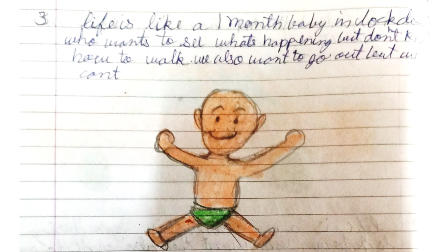 3 life is like a 1 month baby in lockd
who wants to see whats happening but don't k
how to walk we also want to go out but w
cant